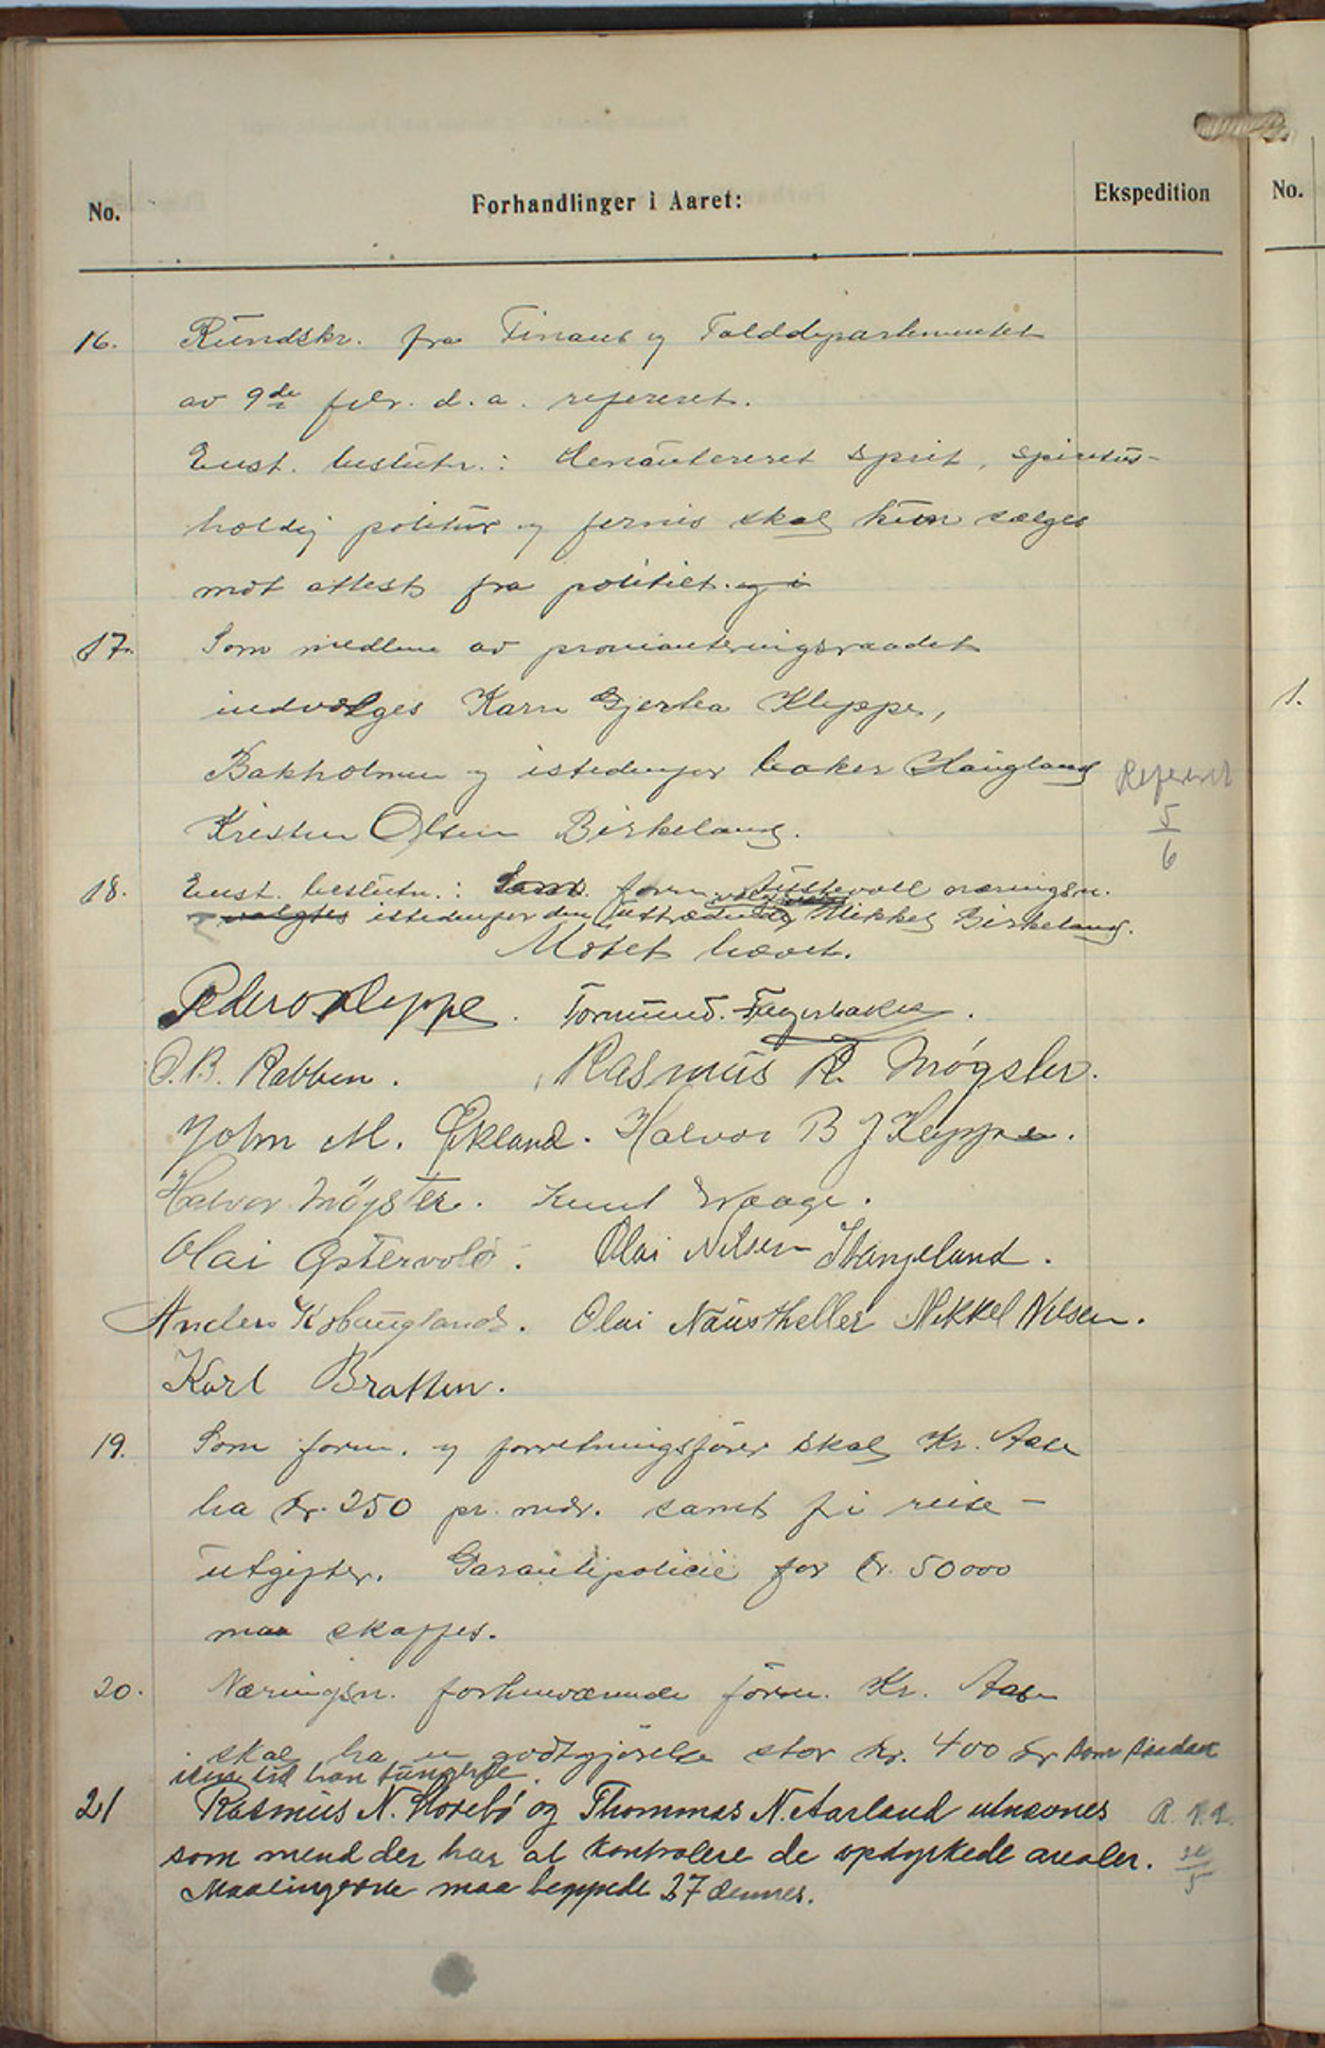 No.
Forhandlinger i Aaret:
Ekspedition
No.
16. Rundskr. fra Finans og Tolddepartementet
av 9de febr. d.a. refereret.
Enst. beslutn.: denatureret sprit, spiritus-
holdig politur og fernis skal kun sælges
mot attest fra politiet. og i
17. Som medlem av provianteringsraadet
indvælges Karn Gjertea Kleppe,
Bakholmen og istedenfor baker Haugland
Kristen Olsen Birkeland.
Refereret
5
6
18. Enst. beslutn.: Som form. Austevoll næringsn.
valgtes istedenfor den uttrædende Mikkel Birkeland.
Møtet hævet.
Peder O. Kleppe. Tormund. Fagerbakke.
O.B. Rabben. Rasmus R. Møgster.
John M. Økland. Halvor B J Kleppe.
Halvor Møgster. Knut Waage.
Olai Østervold. Olai Nilsen Stangeland.
Anders K Haugland. Olai Naustheller Mikkel Nilsen.
Karl Bratten.
19. Som form. og forretningsfører skal Kr. Aase
ha kr. 250 pr. mdr. samt fri reise-
utgifter. Garantipolicie for kr. 50000
maa skaffes.
20. Næringsn. forhenværende form. Kr. Aase
skal ha en godtgjørelse stor kr. 400 for som saadan
den tid han fungerte.
21 Rasmus N. Storebø og Thommas N. Aarland utnevnes
som mend der har at kontrolere de opdyrkede arealer.
Maalingerne maa beggyndt 27 dennes.
1.